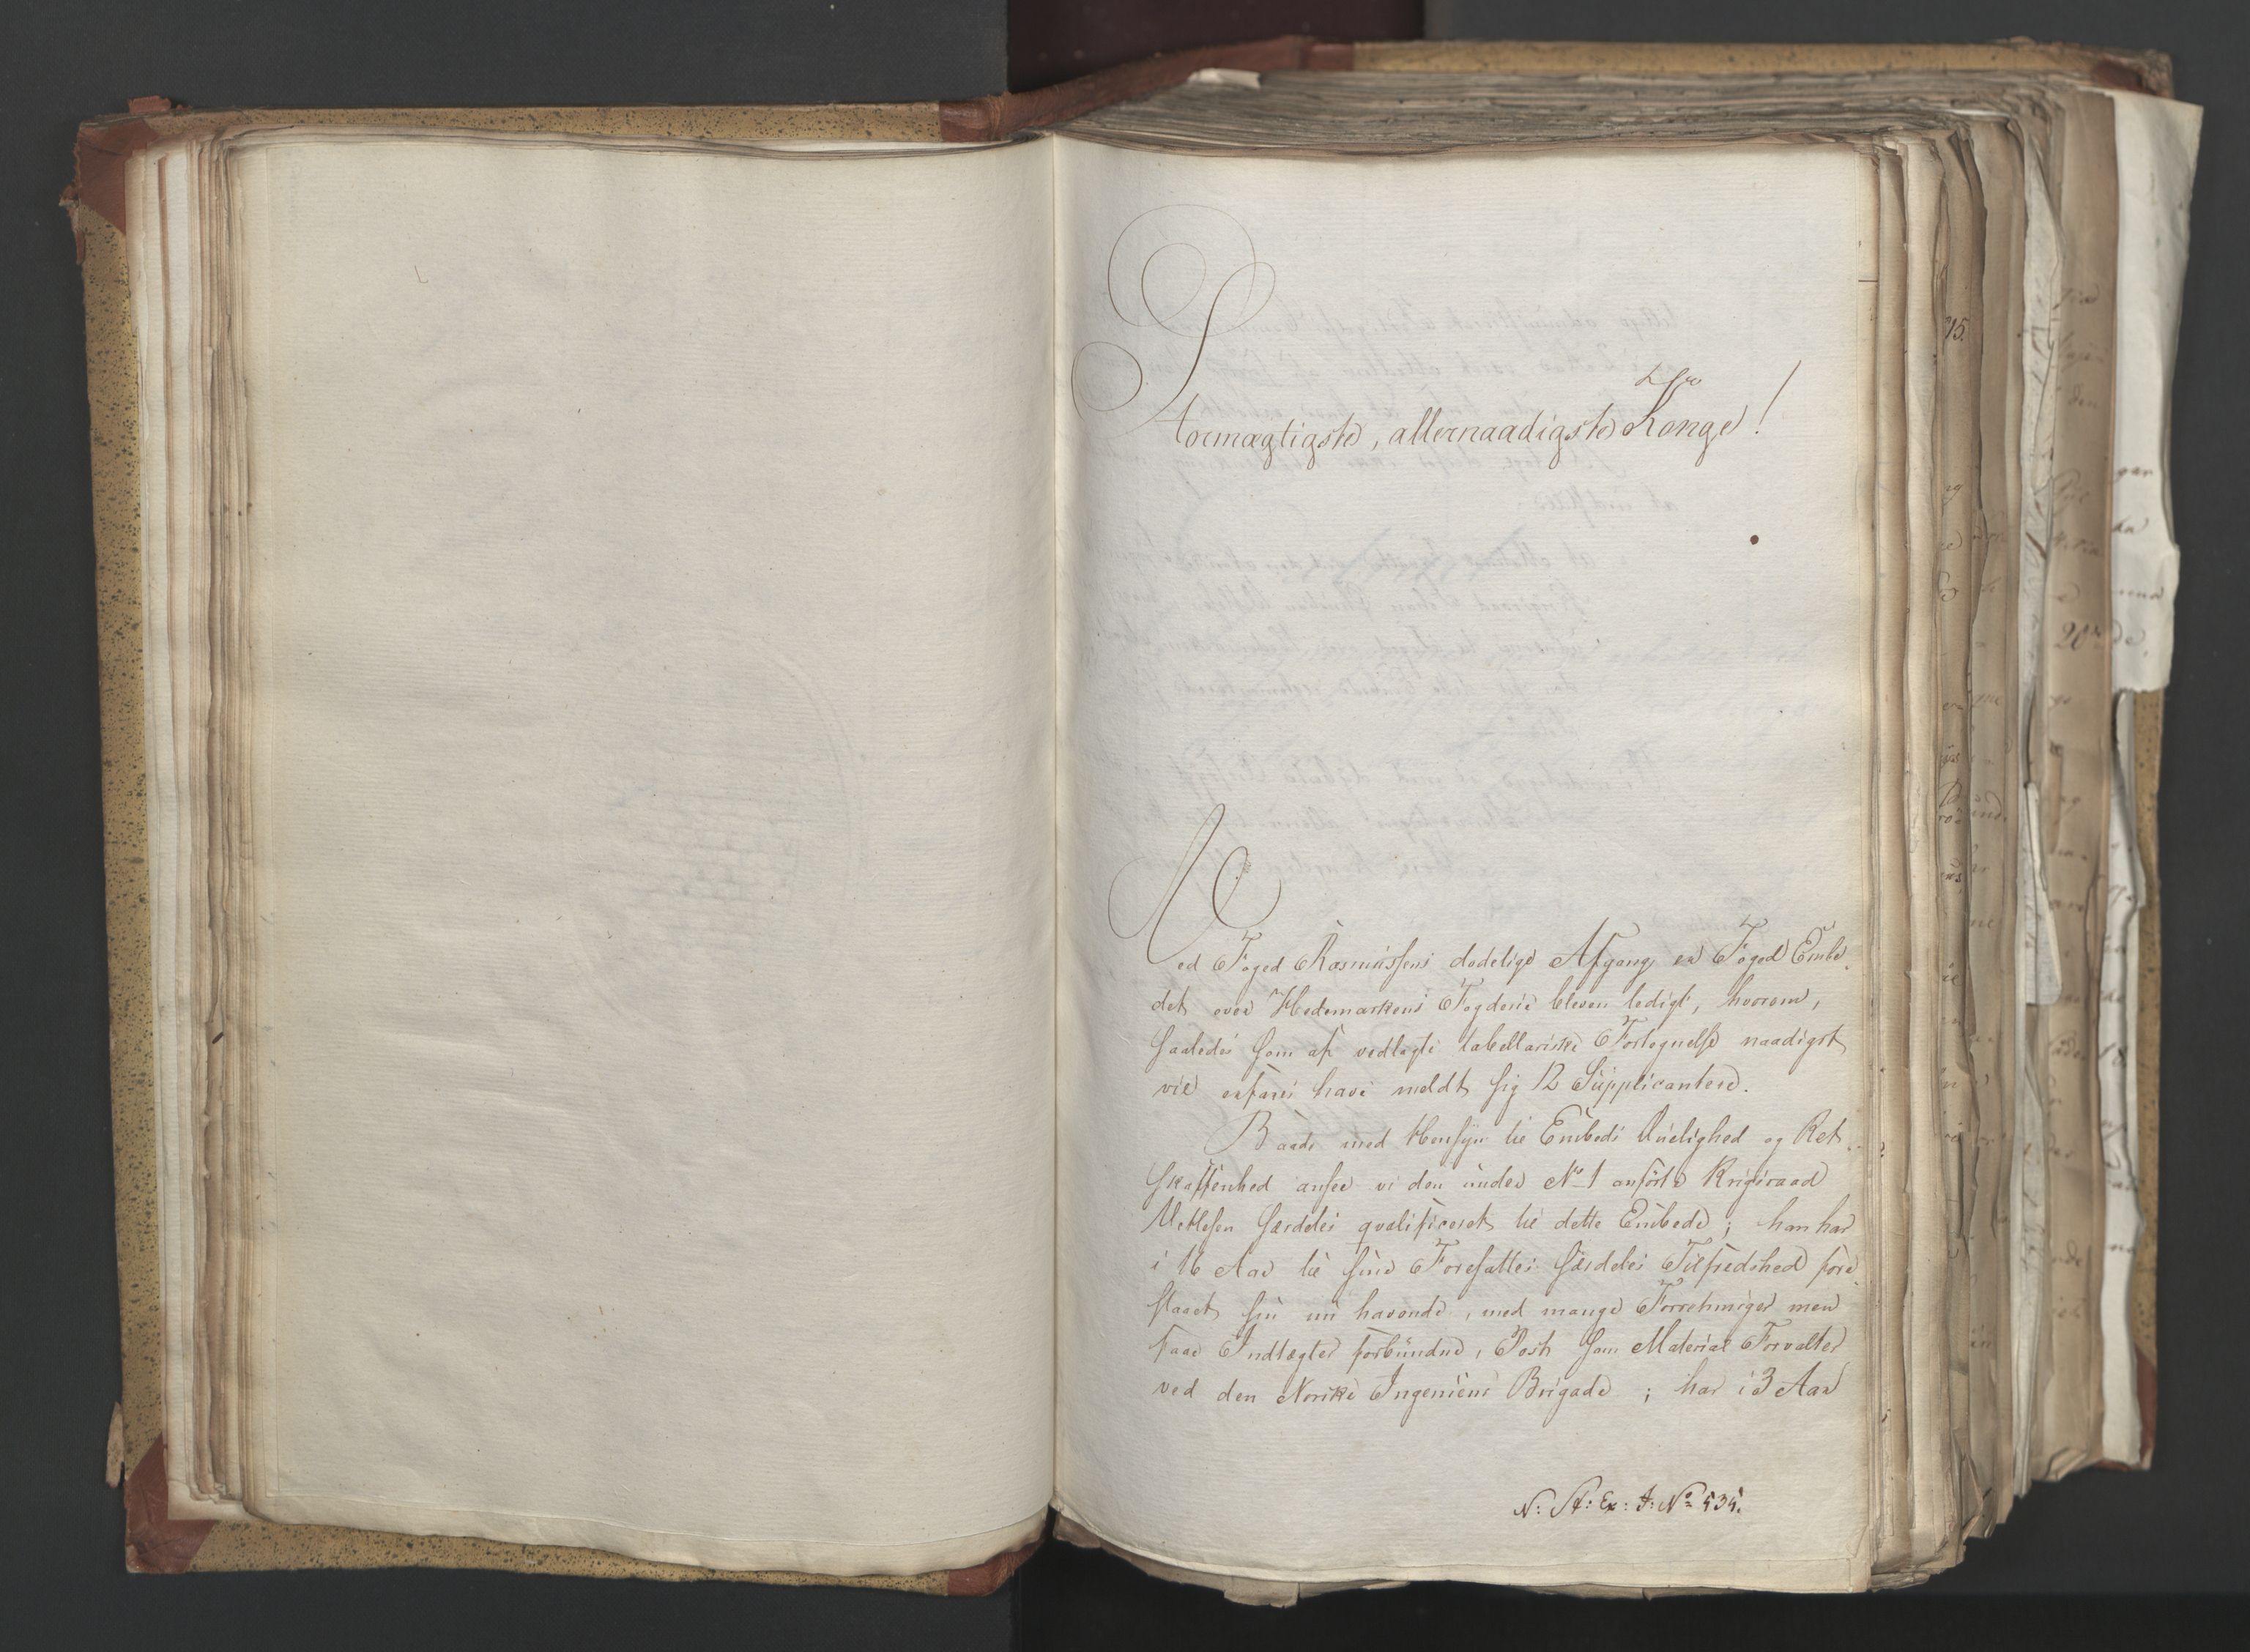 Stormægtigste, allernaadigste Konge!
Ved Foged Rasmussens dødelige Afgang er Foged Embe-
det over Hedemarkens Fogderie bleven ledigt, hvorom,
saaledes som af vedlagte tabellariske Fortegnelse naadigst
vil erfares have meldt sig 12 Supplicantere.
Baade med Hensyn til Embeds Duelighed og Ret-
skaffenhed ansee vi den under No 1 anførte Krigsraad
Vetlesen særdeles qvalificeret til dette Embede; han har
i 16 Aar til sine Foresattes særdeles Tilfredshed fore-
staaet sin nu havende, med mange Forretninger men
faae Indtægter forbundne, Post som Material Forvalter
ved den Norske Ingenieur Brigade; har i 3 Aar
N: St: Ex: J: No 535.